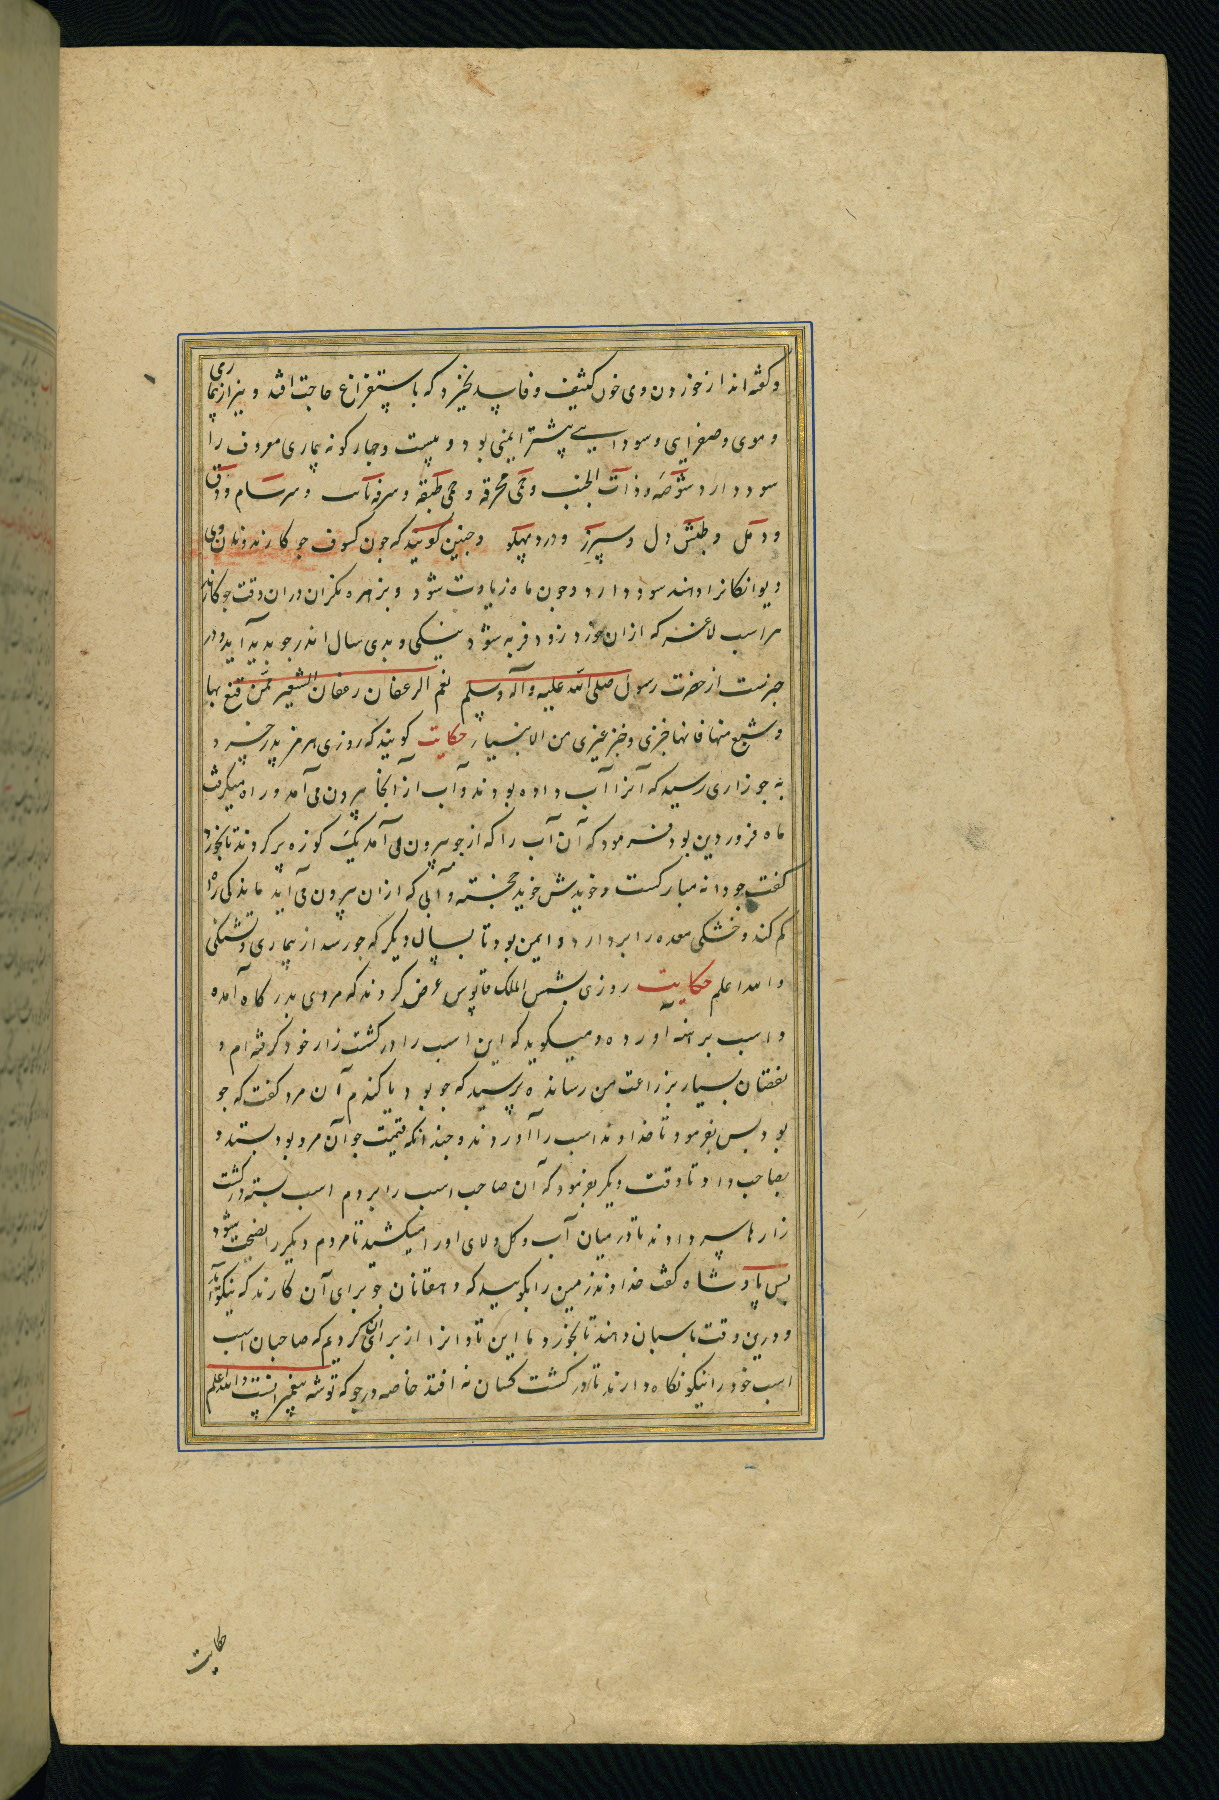 و گفته اند از خوردن وی خون کثیف و فاسد نخیزد که باستفراغ حاجت افتد و نیز از بیماری
دموی و صفرایی و سودایی بیشتر ایمنی بود و بیست و چهار گونه بیماری معروف را
سود دارد شوصه و ذات الجنب و حمی محرقه و حمی طبقه و سرفه و سرسام و دق
و دمل و طپش دل و سپرز و درد پهلو و چنین گویند که چون کسوف جو کارند و نان وی
دیوانگانرا دهند سود دارد و چون ماه زیادت شود و بزهره نگران دران وقت جو کارند
هر اسب لاغر که ازان خورد زود فربه شود نیکی و بدی سال اندر جو پدید آید و در
خبرست از حضرت رسول صلی الله علیه و آله و سلم نعم الرغفان رغفان الشعیر فمن قنع بها
و شبع منها فانها خبزی و خبز غیری من الانبیا حکایت گویند که روزی هرمز پدر خسرو
به جوزاری رسید که آنرا آب داده بودند و آب از آنجا بیرون می آمد و راه میگرفت
ماه فروردین بود فرمود که آن آب را که از جو بیرون می آمد یک کوزه پر کردند تا بخورد
گفت جو دانه مبارکست و خویدش خوید خجسته و آبی که ازان بیرون می آید ماندگی را
کم کند و خشکی معده را بردارد و ایمن بود تا بسال دیگر که جو رسد از بیماری و تشنگی
والله اعلم حکایت روزی بشمس الملک قابوس عرض کردند که مردی بدرگاه آمده
و اسب برهنه آورده و میگوید که این اسب را در کشت زار خود گرفته ام و
نقصان بسیار بزراعت من رسانده پرسید که جو بود یا گندم آن مرد گفت که جو
بود پس بفرمود تا خداوند اسب را آوردند و چندانکه قیمت جو آن مرد بود بستد و
بصاحب داد تا وقت دیگر بفرمود که آن صاحب اسب را بر دم اسب بسته در کشت
زارها سر دادند تا در میان آب و گل و لای او را میکشید تا مردم دیگر را نصیحت شود
پس پادشاه گفت خداوند زمین را بگویید که دهقانان جو برای آن کارند که نیکو آید
و درین وقت باسبان دهند تا بخورد ما این تاوانرا از برای آن کردیم که صاحبان اسب
اسب خود را نیکو نگاه دارند تا در کشت کسان نه افتد خاصه در جو که توشه پیغمبرانست والله اعلم
حکایت